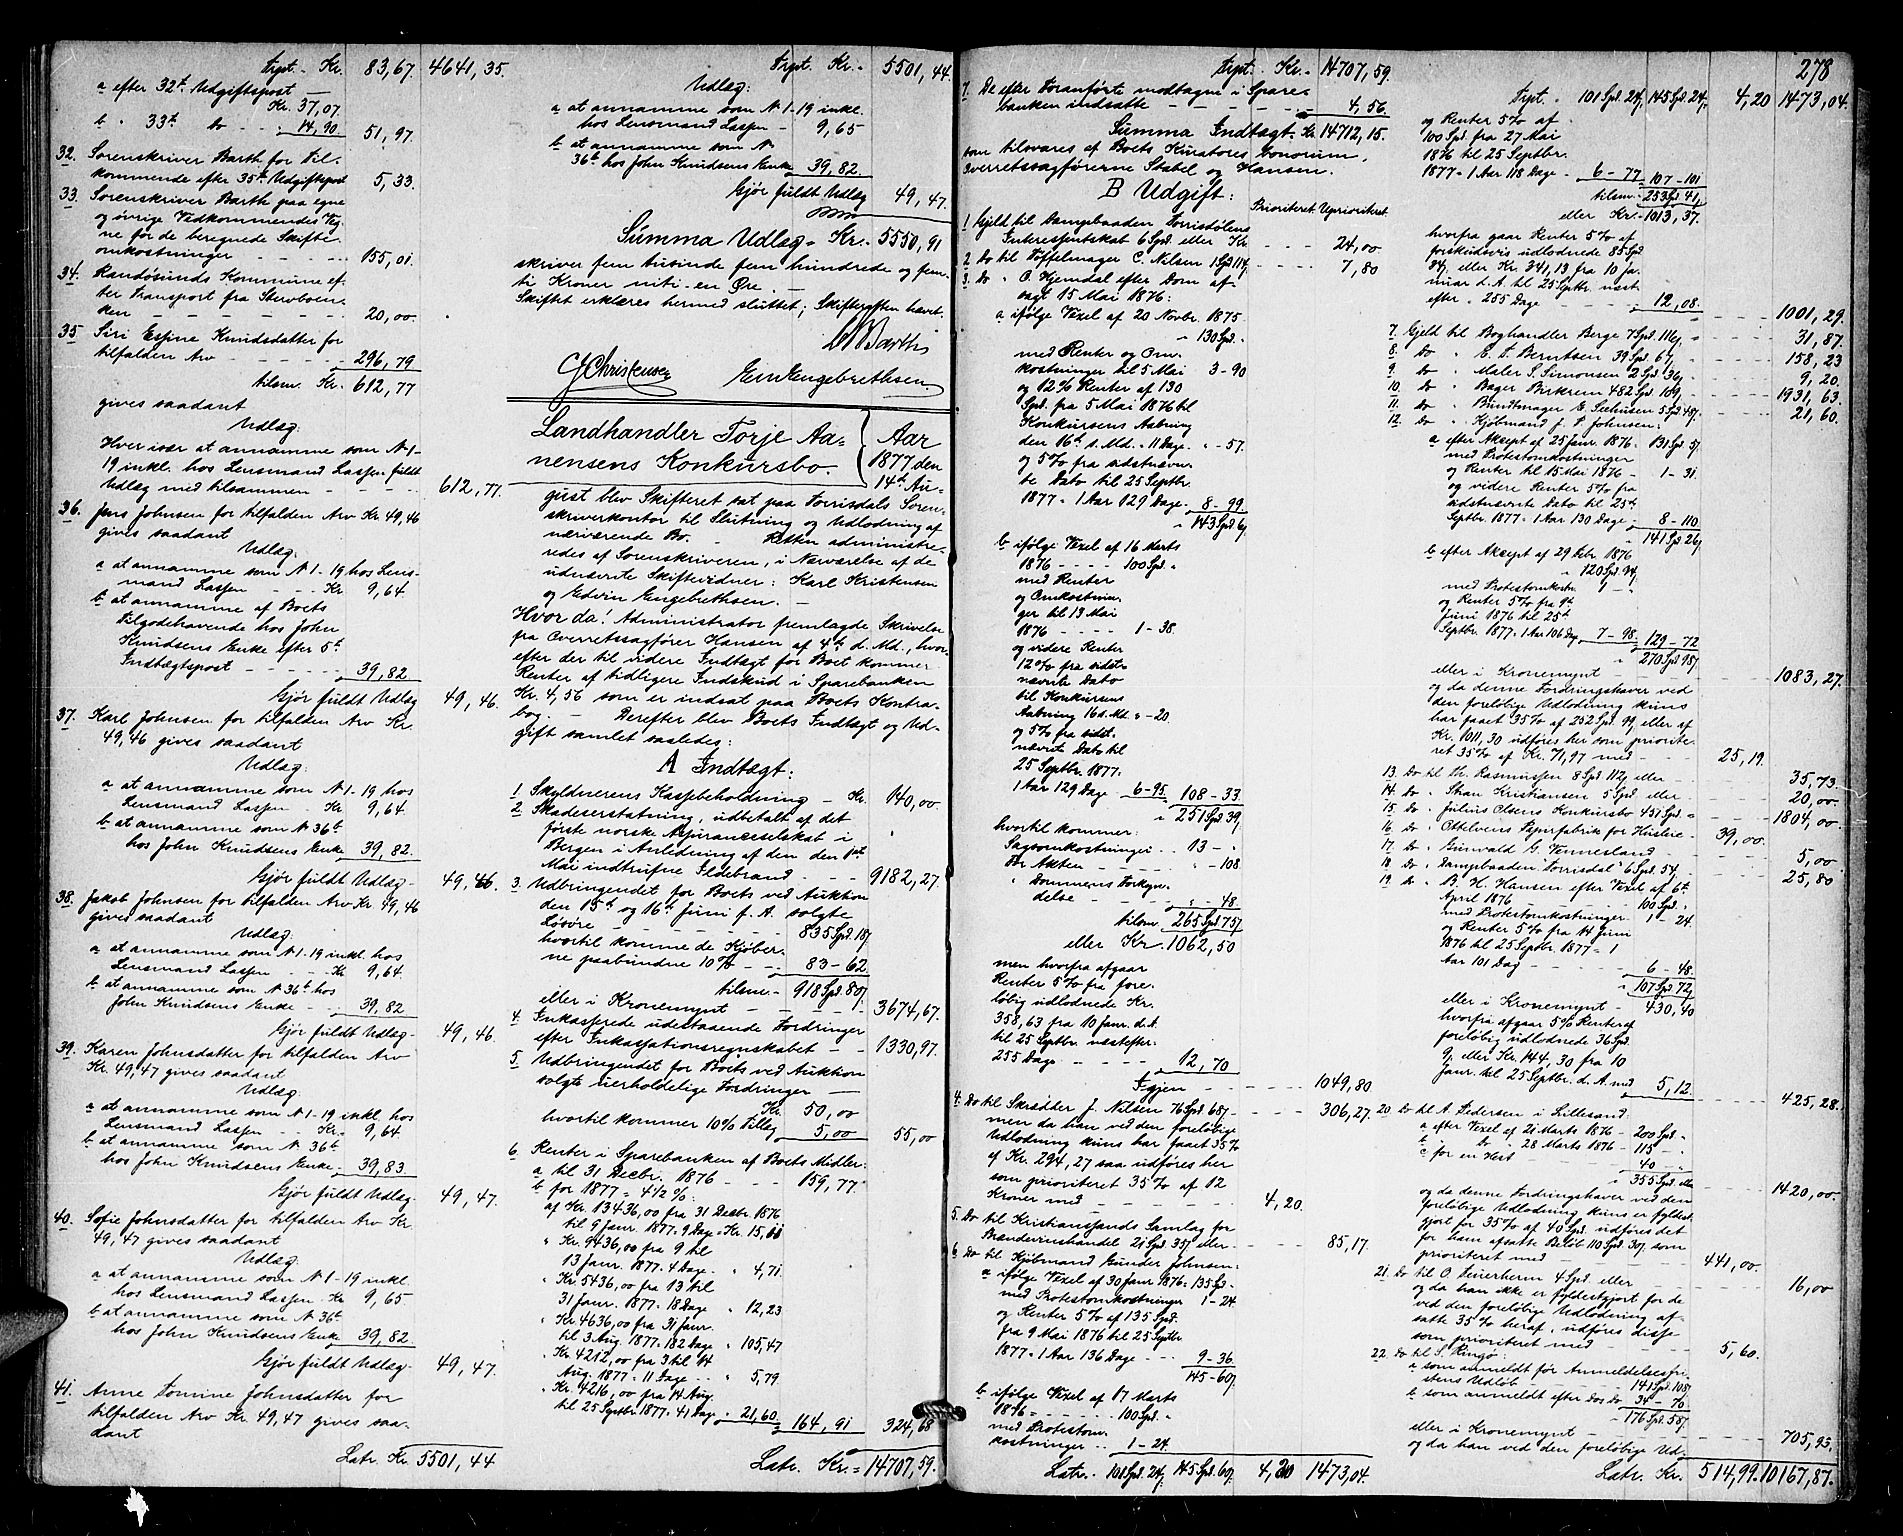 Trpt. Kr. 83,67. 4641,35.
a efter 32te Udgiftspost
Kr. 37,07.
b " 33te do - - 14,90 51,97.
32. Sorenskriver Barth for til-
kommende efter 35te Udgiftspost 5,33.
33. Sorenskriver Barth paa egne
og øvrige Vedkommendes Veg-
ne for de beregnede Skifte-
omkostninger - - - - 155,01.
34. Randøsunds Kommune ef-
ter Transport fra Stervboen-
ken - - - - - - 20,00.
35. Siri Espine Knudsdatter for
tilfalden Arv - - - - 296,79
tilsm. Kr. 612,77
gives saadant
Udlæg:
Hver især at annamme som N 1-
19 inkl. hos Lensmand Lassen fuldt
Udlæg med tilsammen - - - - 612,77.
36. Jens Johnsen for tilfalden Arv Kr. 49,46
gives saadant
Udlæg:
a at annamme som N 1-19 hos Lens-
mand Lassen - - - Kr 9,64
b at annamme af Boets
Tilgodehavende hos John
Knudsens Enke efter 5te
Indtægtspost - - - - 39,82
Gjør fuldt Udlæg 49,46.
37. Karl Johnsen for tilfalden Arv Kr.
49,46 gives saadant
Udlæg:
a at annamme som N 1-19 hos
Lensmand Lassen - Kr 9,64
b at annamme som N 36te
hos John Knudsens Enke 39,82.
Gjør fuldt Udlæg - 49,46.
38. Jakob Johnsen for tilfalden Arv Kr. 49,46
gives saadant
Udlæg:
a at annamme som N 1-19 inkl. hos
Lensmand Lassen - - Kr 9,64.
b at annamme som N 36te hos
John Knudsens Enke - - 39,82
Gjør fuldt Udlæg - 49,46.
39. Karen Johnsdatter for tilfalden Arv
Kr. 49,47 gives saadant
Udlæg:
a at annamme som N 1-19 inkl. hos
Lensmand Lassen - - Kr. 9,64.
b at annamme som N 36te
hos John Knudsens Enke - 39,83
Gjør fuldt Udlæg - 49,47.
40. Sofie Johnsdatter for tilfalden Arv Kr.
49,47 gives saadant
Udlæg:
a at annamme som N 1-19 inkl.
hos Lensmand Lassen Kr 9,65
b at annamme som N 36te
hos John Knudsens Enke 39,82
Gjør fuldt Udlæg - 49,47.
41. Anne Tomine Johnsdatter for
tilfalden Arv Kr. 49,47 gives saa-
dant
Latr. Kr 5501,44
Trpt. Kr. - 5501,44.
Udlæg:
a at annamme som N 1-19 inkl.
hos Lensmand Lassen - 9,65
b at annamme som N
36te hos John Knudsens Enke 39,82.
Gjør fuldt Udlæg 49,47.
Summa Udlæg - Kr. - 5550,91
skriver fem tusinde fem hundrede og fem-
ti Kroner niti-en Øre. -
Skiftet erklæres hermed sluttet; Skifteretten hævet.
Barth
C Christensen Edv Engebrethsen.
Landhandler Torje Aa-
nensens Konkursbo.
Aar
1877 den
14de Au-
gust blev Skifteret sat paa Torrisdals Soren-
skriverkontor til Slutning og Udlodning af
nærværende Bo. - Retten administre-
redes af Sorenskriveren, i Nærværelse af de
udnævnte Skiftevidner: Karl Kristensen
og Edvin Engebrethsen. -
Hvor da! Administrator fremlagde Skrivelse
fra Overretssagfører Hansen af 4de d. Md., hvor-
efter der til videre Indtægt for Boet kommer
Renter af tidligere Indskud i Sparebanken
Kr. 4,56 som er indsat paa Boets Kontra-
bog. - Derefter blev Boets Indtægt og Ud-
gift samlet saaledes:
A Indtægt:
1 Skyldnerens Kassebeholdning - Kr. 140,00.
2 Skadeserstatning, udbetalt af det
første norske Assuranceselskab i
Bergen i Anledning af den den 1ste
Mai indtrufne Ildebrand - - - 9182,27.
3. Udbringendet for Boets ved Auktion
den 15de og 16de Juni f. A. solgte
Løsøre - - - - - - 835 Spd. 18ß
hvortil komme de Kjøber-
ne paabundne 10% - - 83-62
tilsm. - 918 Spd. 80ß
eller i Kronemynt - - - - 3674,67.
4. Inkasserede udestaaende Fordringer
efter Inkassationsregnskabet - - 1330,97.
5. Udbringendet for Boets ved Auktion
solgte uerholdelige Fordringer -
Kr. 50,00
hvortil kommer 10% Tillæg 5,00 55,00
6. Renter i Sparebanken af Boets Midler:
a til 31 Decbr. 1876 - - - 159,77.
b for 1877 - 4 1/2 %:
af Kr. 13436,00 fra 31 Decbr. 1876
til 9 Janr. 1877. 9 Dage - Kr. 15,11
" Kr. 9436,00 fra 9 til
13 Janr. 1877. 4 Dage. " 4,71.
" Kr. 5436,00 fra 13 til
31 Janr. 1877. 18 Dage " 12,23
" Kr. 4636,00 fra 31 Janr.
til 3 Aug. 1877. 182 Dage " 105,47
" Kr. 4212,00 fra 3 til 14
Aug. 1877. 11 Dage - - " 5,79
" Kr. 4216,00 fra 14 Aug.
til 25 Septbr. 1877. 41 Dage " 21,60 164,91 324,68
Latr. Kr. - 14707,59.
Trpt. Kr. - 14707,59.
7. De efter Foranførte modtagne i Spare-
banken indsatte - - - - - 4,56.
Summa Indtægt. Kr. 14712,15.
som tilsvares af Boets Kuratores bonorum,
Overretssagførerne Stabel og Hansen.
B Udgift:
Prioriteret. Uprioriteret.
1 Gjeld til Dampbaaden Torrisdølens
Interessentskab 6 Spd. eller Kr - - - 24,00
2 Do til Tøffelmager C. Nilsen 1 Spd 114ß - - - - 7,80
3. Do " O. Hjemdal efter Dom af-
sagt 15 Mai 1876:
a ifølge Vexel af 20 Novbr. 1875.
" 130 Spd. "
med Renter og Om-
kostninger til 5 Mai 3-90
og 12% Renter af 130
Spd. fra 5 Mai 1876 til
Konkursens Aabning
den 16de s. Md. - 11 Dage. " - 57.
og 5% fra sidstnævn-
te Dato til 25 Septbr.
1877 - 1 Aar 129 Dage. 8-99.
" 143 Spd 6ß
b ifølge Vexel af 16 Marts
1876 - - - - 100 Spd. "
med Renter
og Omkostnin-
ger til 13 Mai
1876 - - - - 1-38.
og videre Renter
12% fra sidst-
nævnte Dato
til Konkursens
Aabning 16 s. Md. " -20.
og 5% fra sidst-
nævnte Dato til
25 Septbr. 1877.
1 Aar 129 Dage 6-95. 108-33.
" 251 Spd 39ß
hvortil kommer:
Sagsomkostninger - - 13 - "
for Akten - - - - " -108.
" Dommens Forkyn-
delse - - - - - " - 48.
tilsm. 265 Spd. 75ß
eller Kr. - 1062,50
men hvorfra afgaar
Renter 5% fra fore-
løbig udlodnede Kr.
358,63 fra 10 Janr. d. A.
til 25 Septbr. næstefter:
255 Dage - - - - - 12,70
Igjen - - - - - 1049,80
4. Do til Skrædder J. Nilsen 76 Spd. 68ß - - - - 306,27.
men da han ved den foreløbige
Udlodning kuns har faaet 35%
af Kr. 294,27 saa udføres her
som prioriteret 35% af 12
Kroner med - - - - - - 4,20.
5. Do til Kristianssands Samlag for
Brændevinshandel 21 Spd. 35ß eller - - - 85,17.
6. Do til Kjøbmand Gunder Johnsen:
a ifølge Vexel af 30 Janr 1876 - 135 Spd. -
med Protestomkostninger 1-24.
og Renter 5% af 135 Spd.
fra 9 Mai 1876 til 25 Septbr.
1877 - 1 Aar 136 Dage - - - 9-36
145-60ß
b ifølge Vexel af 17 Marts
1876 - - - - - - 100 Spd. "
med Protestom-
kostninger - - 1-24.
Latr. 101 Spd. 24ß 145 Spd. 60ß 4,20 1473,04.
278
Trpt. - 101 Spd 24ß 145 Spd 24ß 4,20 1473,04.
og Renter 5% af
100 Spd. fra 27 Mai
1876 til 25 Septbr.
1877 - 1 Aar 118 Dage - 6-77 107-101
tilsm. - 253 Spd 41ß
eller Kr. - 1013,37.
hvorfra gaar Renter 5% af
forskudsvis udlodnede 85 Spd.
34ß eller Kr. 341,13 fra 10 Ja-
nuar d. A. til 25 Septbr. næst
efter - 255 Dage - - - - 12,08. - - - - 1001,29.
7. Gjeld til Boghandler Berge 7 Spd. 116ß - - - - 31,87.
8. Do " E. T. Berntsen 39 Spd. 67ß - - - - 158,23
9. Do " Maler S. Simonsen 2 Spd 36ß - - - - 9,20.
10. Do " Bager Birkrem 482 Spd. 109ß - - - - 1931,63.
11. Do " Bundtmager E. Seehusen 5 Spd 48ß - - - 21,60.
12. Do " Kjøbmand J. P. Johnsen:
a efter Aksept af 25 Janr. 1876 - 131 Spd. 5ß
med Protestomkostninger
og Renter til 15 Mai 1876 - 1-31.
og videre Renter 5% fra
sidstnævnte Dato til 25de
Septbr. 1877 - 1 Aar 130 Dage - 8-110
" 141 Spd 26ß
b efter Aksept af 29 Febr. 1876
" 120 Spd. 94ß
med Protestomkostn. 1 - "
og Renter 5% fra 9de
Juni 1876 til 25de
Septbr. 1877 - 1 Aar 106 Dag 7-98. 129-72
" 270 Spd. 98ß
eller i Kronemynt - - - - - - - - - 1083,27.
og da denne Fordringshaver ved
den foreløbige Udlodning kuns
har faaet 35% af 252 Spd. 99ß eller af
Kr. 1011,30 udføres her som priorite-
ret 35% af Kr. 71,97 med - - - 25,19.
13. Do til Th. Rasmussen 8 Spd 112ß eller - - - - 35,73.
14. Do " Stian Kristiansen 5 Spd eller - - - - 20,00.
15. Do " Julius Olsens Konkursbo 451 Spd. - - - - 1804,00.
16. Do " Ottelvens Papirfabrik for Husleie - 39,00.
17. Do " Gunvald G. Vennesland - - - - 5,00
18. Do " Dampbaaden "Torrisdal" 6 Spd. 54ß - - - - 25,80
19. Do " B. H. Hansen efter Vexel af 6te
April 1876 - - - - - 100 Spd. "
med Protestomkostninger 1-24.
og Renter 5% fra 14 Juni
1876 til 25 Septbr. 1877 - 1
Aar 101 Dag - - - - - 6-48.
" 107 Spd. 72ß
eller i Kronemynt - 430,40
hvorfra afgaar 5% Renter af
foreløbig udlodnede 36 Spd.
9ß eller Kr. 144,30 fra 10
Janr. til 25 Septbr. d. A. med 5,12. - - - 425,28.
20. Do til A. Pedersen i Lillesand:
a efter Vexel af 21 Marts 1876 - 200 Spd. "
b " Do " 28 Marts 1876 - 115 - "
c for en Hest - - - - 40 - "
" 355 Spd. eller - - - 1420,00.
og da denne Fordringshaver ved den
foreløbige Udlodning kuns er fyldest-
gjort for 35% af 40 Spd. udføres det
for ham afsatte Beløb 110 Spd. 30ß som
prioriteret med - - - - - - 441,00.
21. Do til O. Feuerherm 4 Spd. eller - - - - 16,00
og da han ikke er fyldestgjort for de
ved den foreløbige Udlodning af-
satte 35% heraf, udføres disse
som prioriteret med - - - - 5,60.
22. Do til S. Ringø:
a som anmeldt før Anmeldelsesfri-
stens Udløb - - - - - 141 Spd. 108ß
b som anmeldt efter dos Do 34-70.
" 176 Spd. 58ß
eller i Kronemynt - - - - - - - - 705,93.
og da han ved den foreløbige Ud-
Latr. Kr. 514,99. 10167,87.